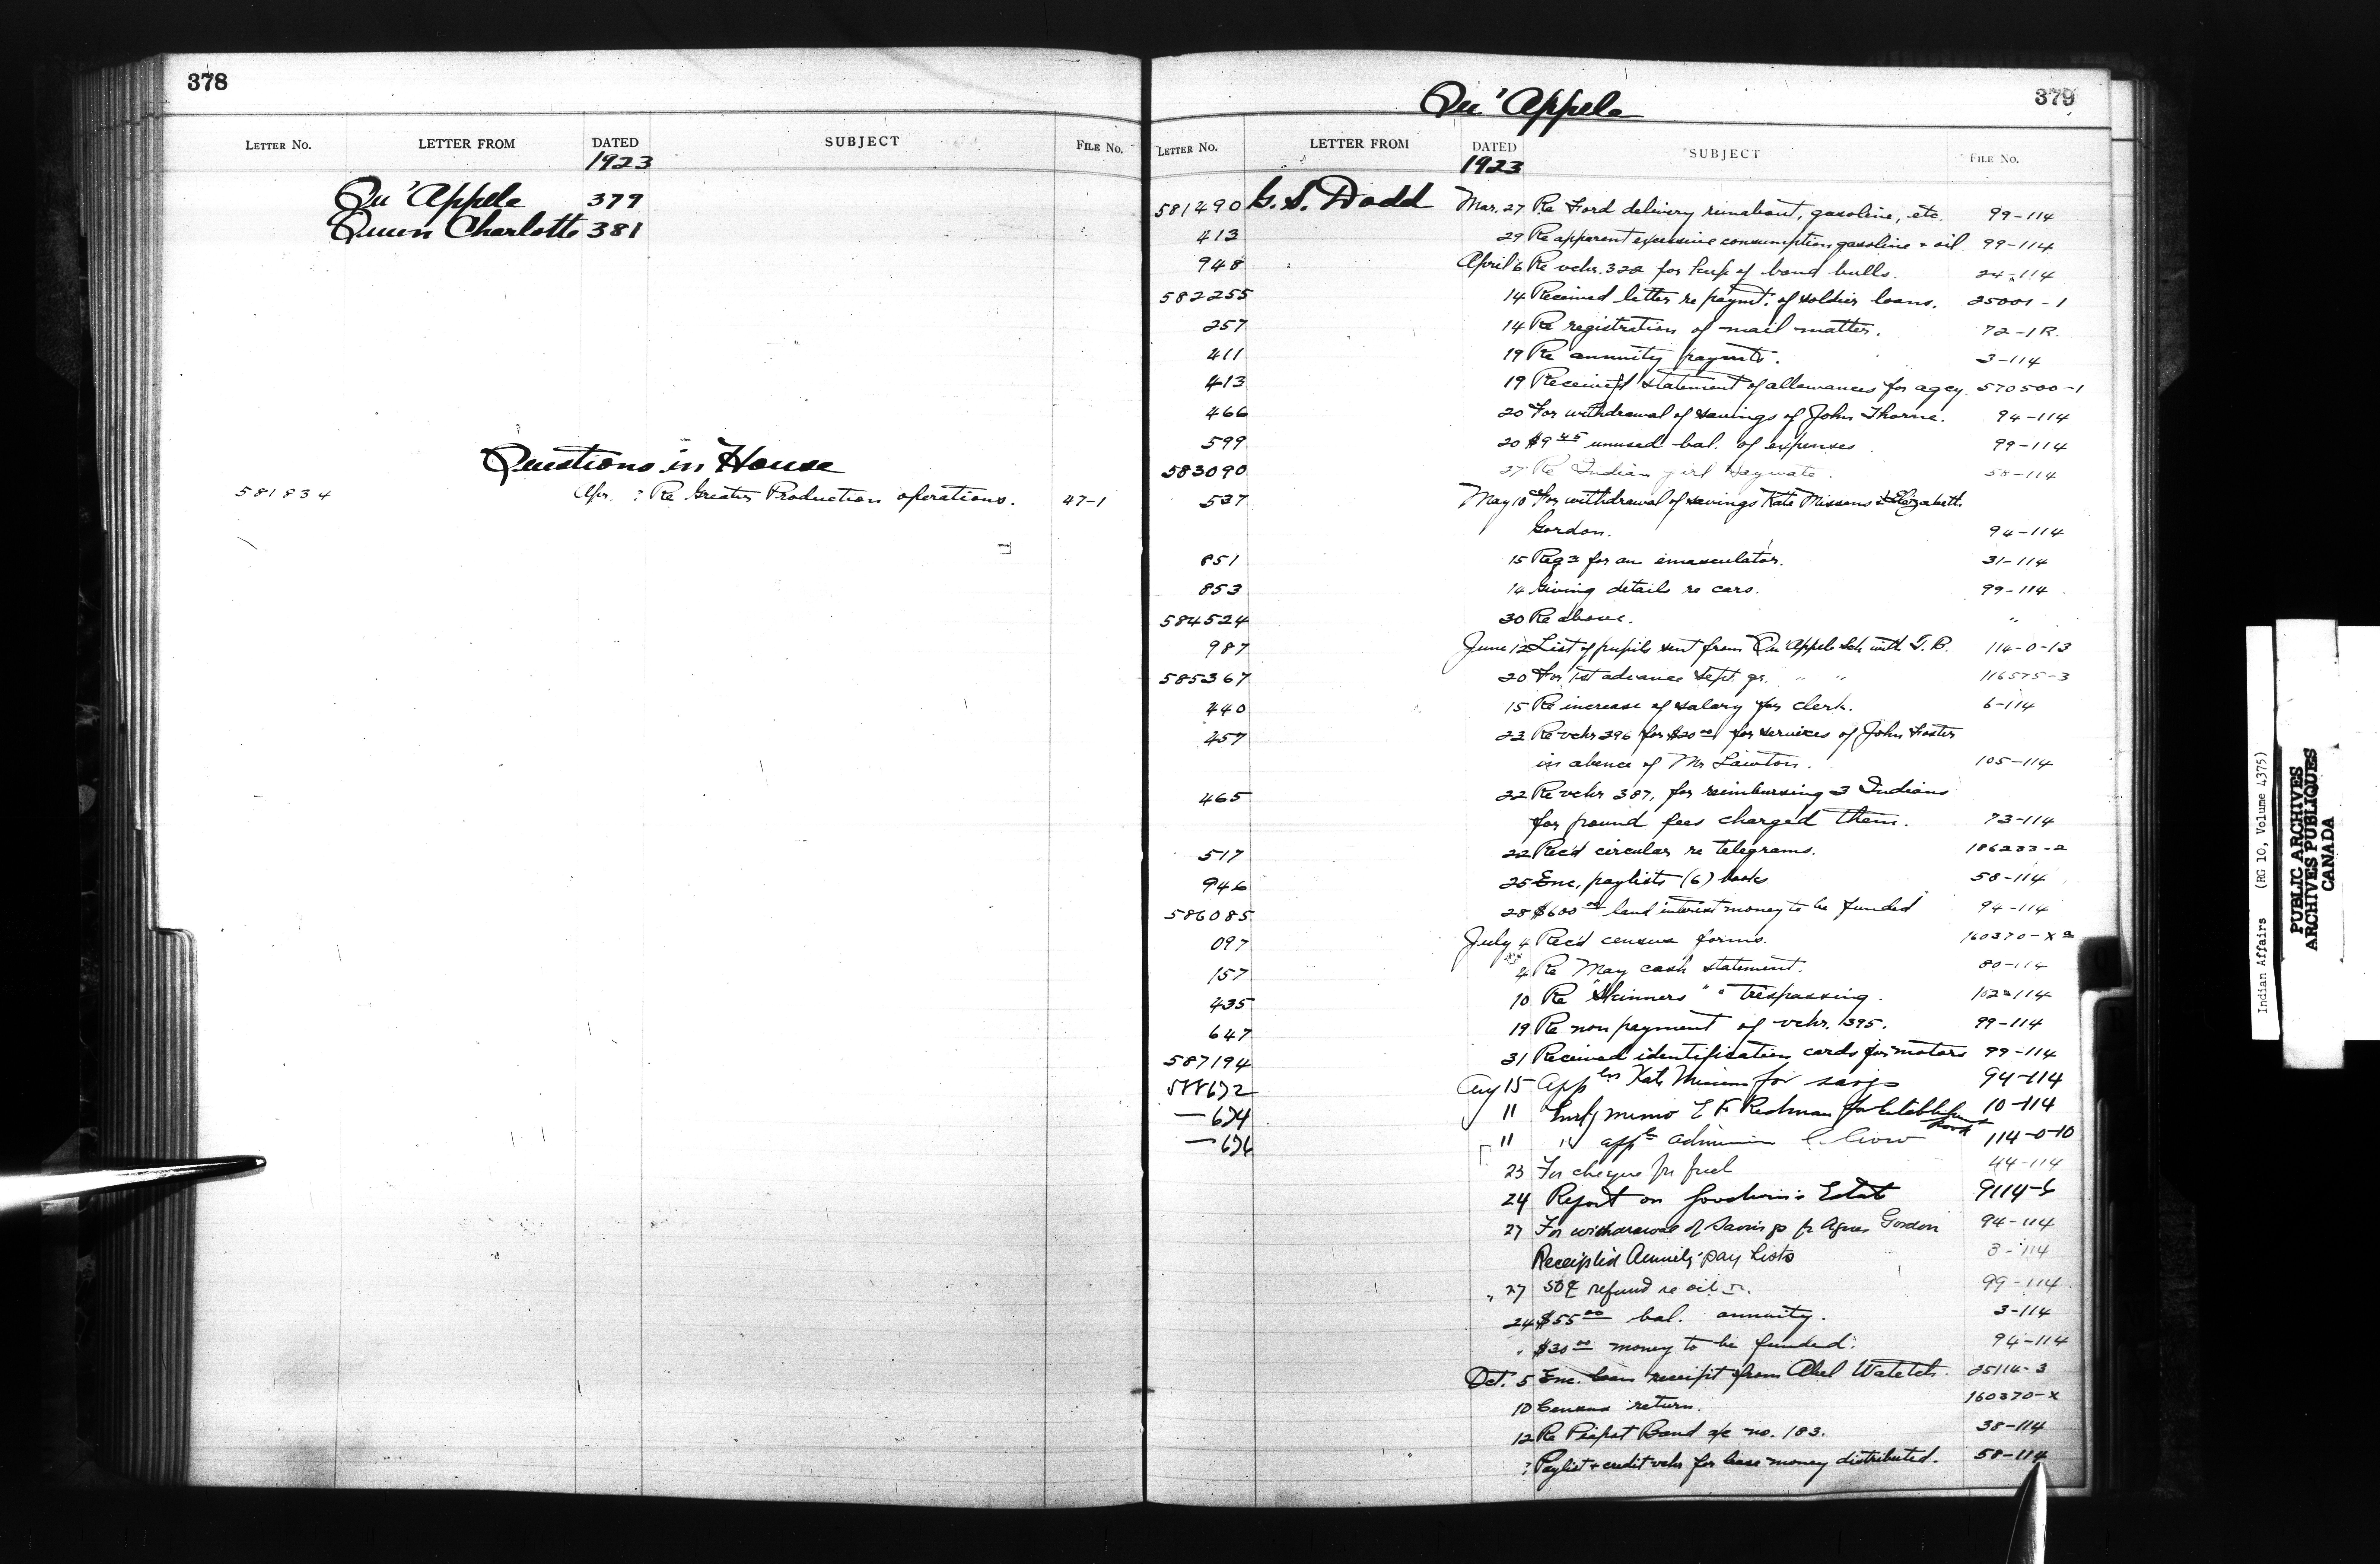 378
LETTER No. LETTER FROM DATED SUBJECT FILE No.
1923
Qu'Appele 379
Queen Charlotte 381
Questions in House
581834 Apr. ? Re Greater Production operations. 47-1
Qu'Appele
379
LETTER No. LETTER FROM DATED SUBJECT FILE No.
1923
581490 G. S. Dodd Mar. 27 Re Ford delivery runabout, gasoline, etc. 99-114
413 29 Re apparent excessive consumption gasoline + oil 99-114
948 April 6 Re vchr. 322 for keep of band bulls. 24-114
582255 14 Received letter re paymt. of soldier loans. 25001-1
257 14 Re registration of mail matter. 72-1R.
411 19 Re annuity paymts. 3-114
413 19 Receipt'd statement of allowances for agcy. 570500-1
466 20 For withdrawal of savings of John Thorne. 94-114
599 20 $9 45 unused bal. of expenses 99-114
583090 27 Re Indian girl 58-114
537 May 10 For withdrawal of savings Kate Missens & Elizabeth
Gordon. 94-114
851 15 Reqn for an emasculator. 31-114
853 14 Giving details re cars. 99-114
584524 30 Re above. "
987 June 12 List of pupils sent from Qu'Appele Sch. with T.B. 114-0-13
585367 20 For 1st advance Sept. qr. " " 116575-3
440 15 Re increase of salary for clerk. 6-114
457 22 Re vchr 396 for $20 00 for services of John Foster
in abence of Mr Lawton. 105-114
465 22 Re vchr 387, for reimbursing 3 Indians
for pound fees charged them. 73-114
517 22 Rec'd circular re telegrams. 186233-2
946 25 Enc. paylists (6) books 58-114
586085 28 $600 00 land interest money to be funded 94-114
097 July 4 Rec'd census forms. 160370-X
157 4 Re May cash statement. 80-114
435 10 Re "Skinners" trespassing. 102-114
647 19 Re non payment of vchr. 395. 99-114
587194 31 Received identification cards for motors 99-114
588672 Aug 15 Appln Kate for savgs 94-114
— 674 11 memo Redman for Establishment 10-114
book
— 676 11 " appln admission 114-0-10
23 For cheque for fuel 44-114
24 Report on Goodwin's Estate 9114-6
27 For withdrawal of Savings fr Agnes Gordon 94-114
Receipted Annuity pay Lists 3-114
" 27 50¢ refund re oil 99-114
24 $55 00 bal. annuity. 3-114
" $30 00 money to be funded. 94-114
Oct. 5 Enc. loan receipt from Abel Watetch. 25114-3
10 Census return. 160370-X
12 Re Peipot Band a/c no. 183. 38-114
? Paylist + credit vchr for lease money distributed. 58-114
Indian Affairs (RG 10, Volume 4375)
PUBLIC ARCHIVES
ARCHIVES PUBLIQUES
CANADA